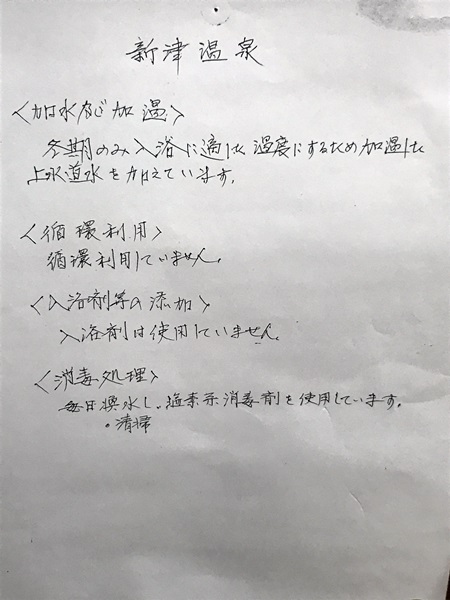 新津温泉
<加水及び加温>
冬期のみ入浴に適した温度にするため加温した
上水道水を加えています。
<循環利用>
循環利用していません。
<入浴剤等の添加>
入浴剤は使用していません。
<消毒処理>
毎日換水し、塩素系消毒剤を使用しています。
・清掃